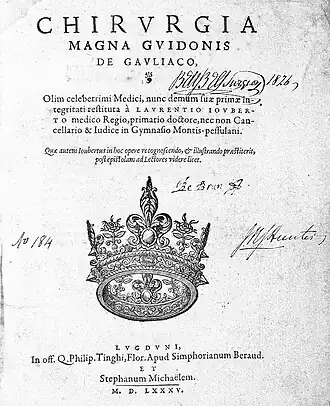 CHIRVRGIA
MAGNA GVIDONIS
DE GAVLIACO,
Olim celeberrimi Medici, nunc demum suæ primæ in-
tegritati restituta à LAVRENTIO IOVBER-
TO medico Regio, primario doctore, nec non Can-
cellario & Iudice in Gymnasio Montis-pessulani.
Quæ autem Ioubertus in hoc opere recognoscendo, & illustrando præstiterit,
post epistolam ad Lectores videre licet.
1826
Le Brun
No 184
LVGDVNI,
In off. Q. Philip. Tinghi, Flor. Apud Simphorianum Beraud.
ET
Stephanum Michaëlem.
M. D. LXXXV.